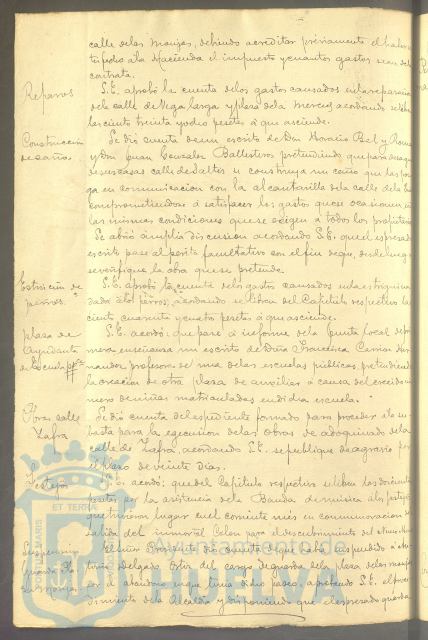 calle de las Monjas, debiendo acreditar préviamente el haber sa-
tisfecho a la Hacienda el impuesto y cuantos gastos sean de la
contrata.
Reparos
S.E. aprobó la cuenta de los gastos causados en la reparacion
de la calle de Vega larga y plaza de la Merced acordando se libren
las ciento treinta y ocho pesetas á que asciende.
Construccion
de caño
Se dió cuenta de un escrito de Don Horacio Bel y Roman
y Don Juan Gonzalez Ballesteros pretendiendo que para desague
de sus casas calle de se construya un caño que las pon-
ga en comunicacion con la alcantarilla de la calle de la
comprometiendose á satisfacer los gastos que se ocasionen en
las mismas condiciones que se exigen a todos los propietarios
Se abrió ámplia discusion acordando S.E. que el espresado
escrito pase al perito facultativo con el fin de que, desde luego
se verifique la obra que se pretende.
Estricnina de
perros.
S.E. aprobó la cuenta de los gastos causados en la estriquina
dada á los perros; acordando se libren del Capitulo respectivo las
ciento cuarenta y cuatro pesetas á que asciende.
plaza de
Ayudanta
de Escuela ppca
S.E. acordó: que pase á informe de la Junta local de pri-
mera enseñanza un escrito de Doña Francisca
nandez profesora de una de las escuelas públicas, pretendiendo
la creacion de otra plaza de auxiliar á causa del crecido nú-
mero de niñas matriculadas en dicha escuela.
Obras calle
Zafra
Se dió cuenta del espediente formado para proceder á la su-
basta para la egecucion de las obras de adoquinado de la
calle de Zafra, acordando S.E. se publique de agravio por
el plazo de veinte dias.
Festejos
S.E. acordó: que del Capitulo respectivo se libren las
pesetas por la asistencia de la Banda de música á los festejos
que tuvieron lugar en el corriente mes en conmemoracion de la
salida del inmortal Colon para el descubrimiento del Nuevo Mundo
El Señor Presidente dió cuenta de que habia suspendido á
Delgado Ortiz del cargo de guarda de la plaza de las Monjas
por el abandono en que tenia dicho paseo, aprobando S.E. el proce-
dimiento de la Alcaldia y disponiendo que el espresado guarda
PORTUS MARIS
ET TERRÆ
Ayuntamiento de
HUELVA